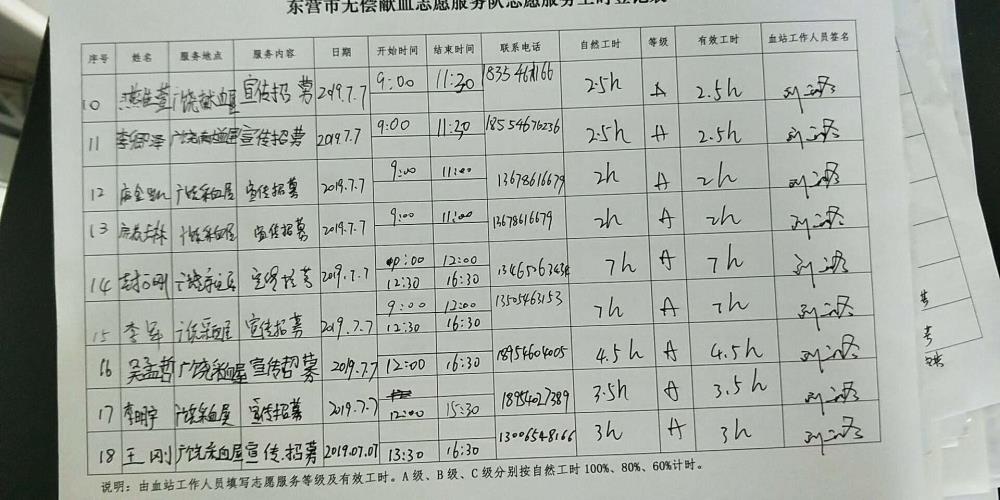 东营市无偿献血志愿服务队志愿服务工时登记表
序号 姓名 服务地点 服务内容 日期 开始时间 结束时间 联系电话 自然工时 等级 有效工时 血站工作人员签名
10 广饶献血屋 宣传招募 2019.7.7 9:00 11:30 2.5h A 2.5h
11 宣传招募 2019.7.7 9:00 11:30 18554676236 2.5h A 2.5h
12 广饶采血屋 宣传招募 2019.7.7 9:00 11:00 13678616679 2h A 2h
13 广饶采血屋 宣传招募 2019.7.7 9:00 11:00 13678616679 2h A 2h
14 宣传招募 2019.7.7 12:00 7h A 7h
12:30 16:30
15 李军 广饶采血屋 宣传招募 2019.7.7 9:00 12:00 13505463153 7h A 7h
12:30 16:30
16 吴孟哲 广饶采血屋 宣传招募 2019.7.7 12:00 16:30 18954604005 4.5h A 4.5h
17 李明宇 广饶采血屋 宣传招募 2019.7.7 12:00 15:30 18954027389 3.5h A 3.5h
18 王刚 广饶采血屋 宣传招募 2019.07.07 13:30 16:30 13006548166 3h A 3h
说明：由血站工作人员填写志愿服务等级及有效工时。A级、B级、C级分别按自然工时100%、80%、60%计时。